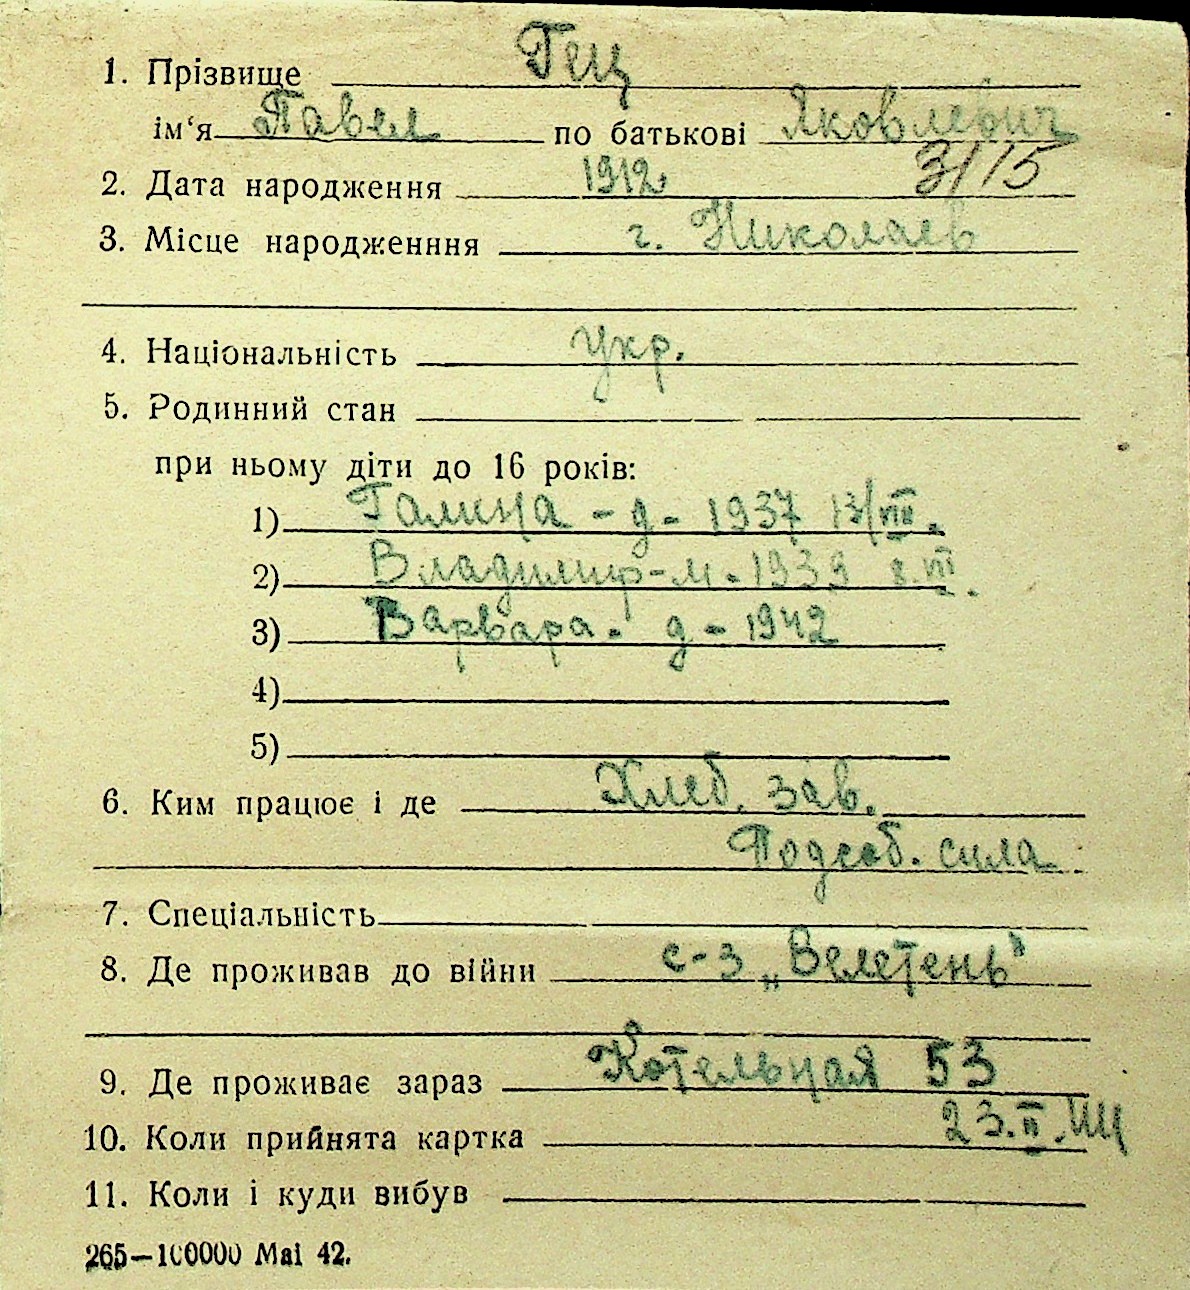 1. Прізвище Гец
ім‘я Павел по батькові Яковлевич
2. Дата народження 1912 3/15
3. Місце народженння г. Николаев
4. Національність Укр.
5. Родинний стан
при ньому діти до 16 років:
1) Галина - д - 1937 13/VIII.
2) Владимир - м - 1939 8.VII.
3) Варвара - д - 1942
4)
5)
6. Ким працює і де Хлеб. зав.
Подсоб. сила
7. Спеціальність
8. Де проживав до війни с-з „Велетень"
9. Де проживає зараз Котельная 53
10. Коли прийнята картка 23.II.44
11. Коли і куди вибув
265—100000 Mai 42.